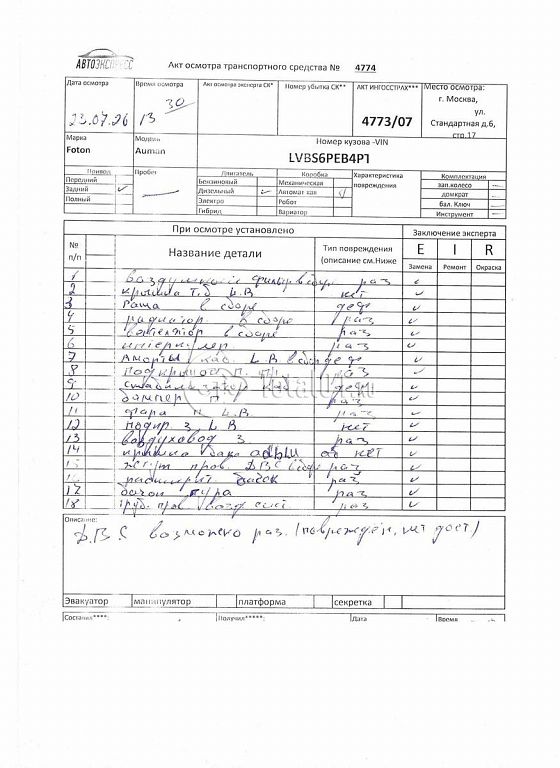 АВТОЭКСПРЕСС
Акт осмотра транспортного средства № 4774
Дата осмотра Время осмотра Акт осмотра эксперта СК* Номер убытка СК** АКТ ИНГОССТРАХ*** Место осмотра:
г. Москва,
ул.
Стандартная д.6,
стр.17
23.07.26 13 30 4773/07
Марка Модель Номер кузова -VIN
Foton Auman LVBS6PEB4P1
Привод Пробег Двигатель Коробка Характеристика повреждения Комплектация
Передний Бензиновый Механическая зап.колесо
Задний Дизельный Автомат кая домкрат
Полный Электро Робот бал. Ключ
Гибрид Вариатор Инструмент
При осмотре установлено Заключение эксперта
№ п/п Название детали Тип повреждения (описание см.Ниже E I R
Замена Ремонт Окраска
1 воздушный фильтр в сборе раз
2 крышка Т.б L.В нет
3 Рама в сборе деф
4 радиатор в сборе раз
5 вентилятор в сборе раз
6 интеркулер раз
7 Аморты каб L.В в сборе деф
8 подкрылок п. раз
9 стабилизатор каб деф
10 бампер п раз
11 фара п L.В раз
12 подкр З L.В нет
13 воздуховод З раз
14 крышка бака нет
15 жгут пров ДВС в сборе раз
16 расширит бачок раз
17 бачок гура раз
18 труб. пров возд сист раз
Описание:
Д.В.С возможно раз. (поврежден, нет дост)
Эвакуатор манипулятор платформа секретка
Составил****: Получил*****: Дата Время
Total01.ru